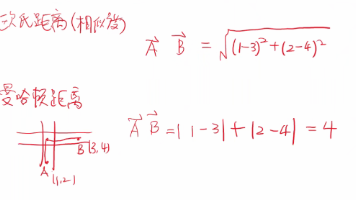 欧氏距离(相似度)
A⃗ B⃗ = √(1-3)²+(2-4)²
曼哈顿距离
A⃗ B⃗ = |1-3| + |2-4| = 4
B(3,4)
A
(1,2)